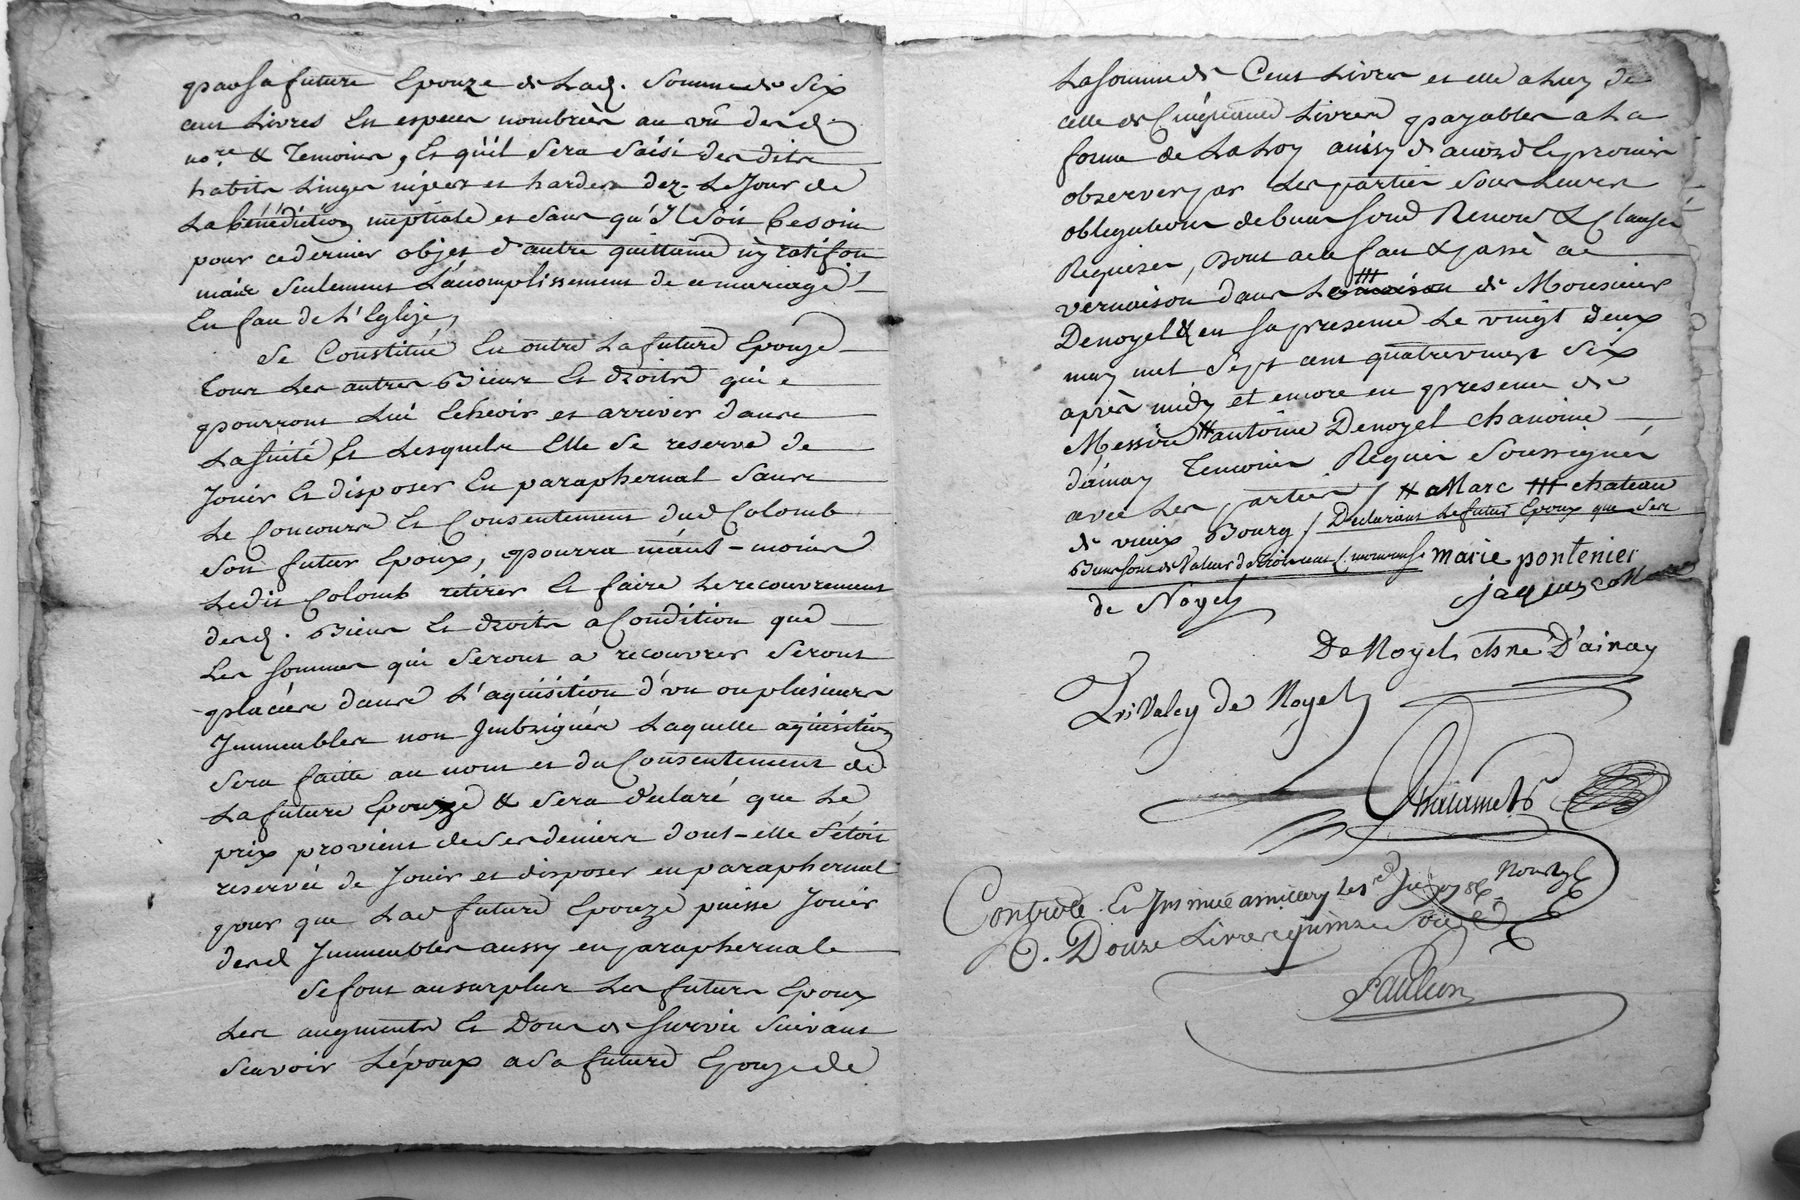 par sa future Epouze de Lad. Somme de Six
cent Livres En especes nombreès au vû desd.
no.re & Temoins, Et qu'il Sera Saisi desdits
habits Linges nipes et hardes dez-Le Jour de
La bénédiction nuptiale et Sans qu'Il Soit besoin
pour ce dernier objet d'autre quittance ny ratifon
mais Seulement L'acomplissement de ce mariage
En face de L'Eglize,
Se Constitue En outre La future Epouze
Tous Les autres Biens Et droits qui
pourront Lui Echeoir et arriver dans
La suite, Et Lesquels Elle Se reserve de
Jouir Et disposer En paraphernal Sans
Le Concours Et Consentement dud Colomb
Son futur Epoux, pourra néant-moins
Ledit Colomb retirer Et faire Le recouvrement
desd. Biens Et droits a Condition que
Les Sommes qui Seront a recouvrer Seront
placées dans L'aquisition d'un ou plusieurs
Immeubles non Laquelle aquisition
Sera faitte au nom et du Consentement de
La future Epouze & Sera déclaré que Le
prix provient de Ses deniers dont-elle S'étoit
réservée de Jouir et disposer en paraphernal
pour que Lad future Epouze puisse Jouir
desd Immeubles aussy en paraphernale
Se font au surplus Les futurs Epoux
Les augments Et Dons de Survie Suivant
Scavoir L'époux a Sa future Epouze de
La Somme de Cent Livres et elle a Luy de
celle de Cinquante Livres payables a La
forme de La Loy ainsy d'accord Et promis
observer par Les parties Sous Leurs
obligations de biens Soud Renon & Clauses
Requises, Dont acte fait & passé ad
vernaison dans Le maison de Monsieur
Denoyel & en Sa presence Le vingt deux
may mil Sept cent quatrevingt Six
après midy et encore en presence de
Messire # antoine Denoyel chanoine
d'ainay Temoins Requis Soussignés
avec Les parties / # Marc ### chateau
de vieux Bourg / Déclarant Le futur Epoux que Ses
Biens Sont de Valeur de marie pontenier
de Noyel Jaques
De Noyel chne D'ainay
De Noyel
Chalamel
Controlé Et Insinué a Millery Les
Douze Livres quinze Sols